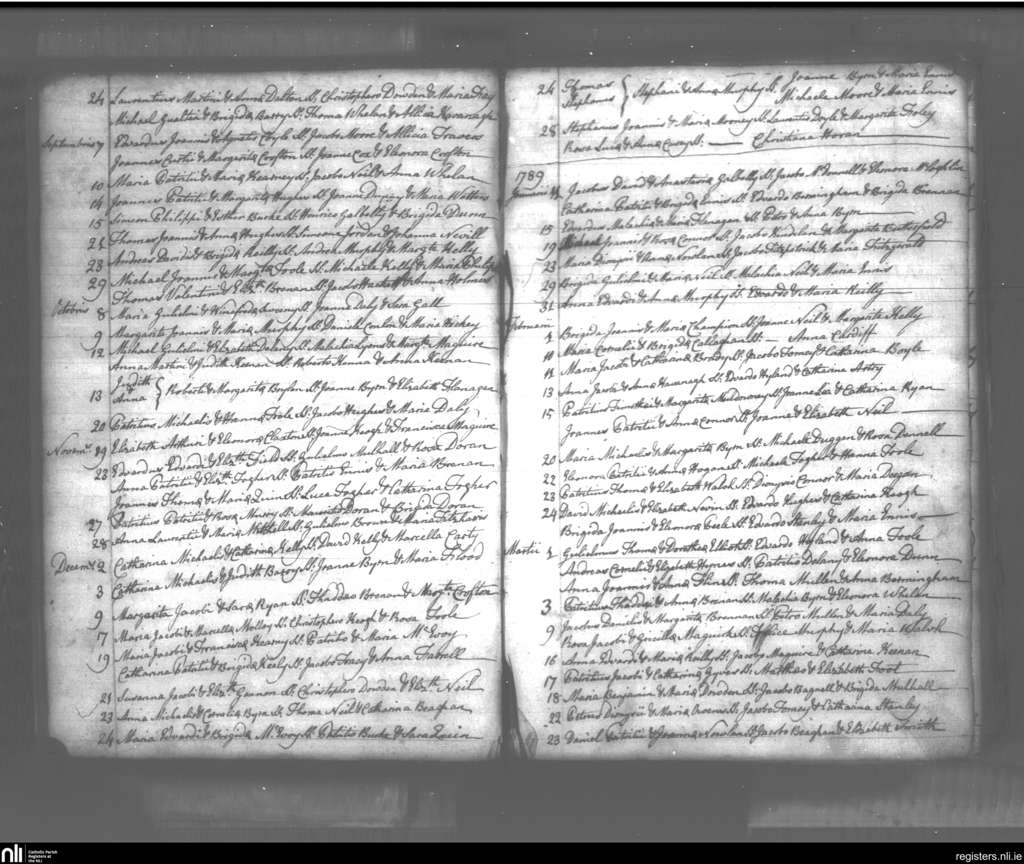 24 Laurentius Martini & Anna Dalton Sp. Christophero Dowden & Maria Fay
Michael Gualteri & Brigida Barry Sp. Thoma Whelan & Allicia Kavanagh
Septembris 7 Edvardus Joannis & Sp. Jacobo Moore & Allicia Travers
Joannes & Margarita Crofton Sp. Joanne Cox & Eleonora Crofton
10 Maria Patritii & Maria Kearney Sp. Jacobo Neil & Anna Whelan
14 Joannes Patritii & Margarita Hughes Sp. Joanne & Maria Watters
15 Simeon Philippi & Esther Burke Sp. Henrico Galbelly & Brigida Dunn
21 Thomas Joannis & Anna Hughes Sp. Simeone Jordan & Johanna Nevill
23 Andreas Davidis & Brigida Reilly Sp. Andrea Murphy & Margta Kelly
29 Michael Joannis & Margta Toole Sp. Michaele Kelly & Maria Phelps
Thomas Valentini & Elizth Brenan Sp. Jacobo & Anna Holmes
Octobris 8 Maria Gulielmi & Winefreda Sweeny Sp. Joanne Daly & Gall
9 Margarita Joannis & Maria Murphy Sp. Daniele Conlon & Maria Hickey
12 Michael Gulielmi & Elizabeth Delany Sp. Malachia Lyons & Margta Maguire
Anna Martini & Judith Keenan Sp. Roberto Kenna & Anna Keenan
13 Judith
Anna } Roberti & Margarita Boylan Sp. Joanne Byrn & Elizabeth Flanagan
20 Patritius Michaelis & Hanna Toole Sp. Jacobo Hughes & Maria Daly
Novemr 19 Elizabeth Arthuri & Eleonora Sp. Joanne Keogh & Francisca Maguire
23 Edvardus Edvardi & Elizth Field Sp. Gulielmo Mulhall & Rosa Doran
Anna Patritii & Elizth Fogher Sp. Patritio Ennis & Maria Brenan
Joannes Thoma & Maria Quinn Sp. Luca Fogher & Catharina Fogher
27 Patritius Patritii & Rosa Murry Sp. Mauritio Doran & Brigida Doran
28 Anna Laurentii & Maria Mitchell Sp. Gulielmo Brown & Maria
Decemr 2 Catharina Michaelis & Catharina Kelly Sp. David Kelly & Marcella Carty
3 Catharina Michaelis & Judith Bacon Sp. Joanne Byrn & Maria Flood
9 Margarita Jacobi & Sara Ryan Sp. Thaddeo Brenan & Margta Crofton
17 Maria Jacobi & Marcella Molloy Sp. Christophero Keogh & Rosa Toole
19 Maria Jacobi & Francisca Kearney Sp. Patritio & Maria McEvoy
Catharina Patritii & Brigida Keely Sp. Jacobo Tracy & Anna Farrell
21 Susanna Jacobi & Elizth Gannon Sp. Christophero Dowden & Elizth Neil
23 Anna Michaelis & Cornelia Byrn Sp. Thoma Neil & Catharina Beaghan
24 Maria Edvardi & Brigida McEvoy Sp. Patritio Burke & Sara Quin
24 Thomas
Stephanus } Stephani & Anna Murphy Sp. Joanne Byrn & Maria Ennis
Michaele Moore & Maria Ennis
28 Stephanus Joannis & Maria Mooney Sp. Laurentio Doyle & Margarita Farley
Rosa Luca & Anna Casey Sp. — Christina Horan
1789
Januarii 4 Jacobus David & Anastasia Galbally Sp. Jacobo McDonnell & Eleonora McLoghlin
Catharina Patritii & Brigida Ennis Sp. Edvardo Bermingham & Brigida Brennan
15 Edvardus Malachia & Maria Flanagan Sp. Petro & Anna Byrn
19 Michael Joannis & Rosa Connor Sp. Jacobo & Margarita Butterfield
23 Maria & Anna Nowlan Sp. Jacobo Fitzpatrick & Maria Fitzgerald
29 Brigida Gulielmi & Maria Neil Sp. Malachia Neil & Maria Ennis
31 Anna Edvardi & Anna Murphy Sp. Edvardo & Maria Reilly
Februarii 2 Brigida Joannis & Maria Champion Sp. Joanne Neil & Margarita Kelly
10 Maria Cornelii & Brigida Callaghan Sp. — Anna Cardiff
11 Maria Jacobi & Catharina Brady Sp. Jacobo Tomey & Catharina Boyle
13 Anna Jacobi & Anna Kavanagh Sp. Edvardo Hyland & Catharina
15 Patritius Timothei & Margarita Sp. Joanne Lee & Catharina Ryan
Joannes Patritii & Anna Connor Sp. Joanne & Elizabeth Neil
20 Maria Michaelis & Margarita Byrn Sp. Michaele Duggan & Rosa Donnell
22 Eleonora Patritii & Anna Hogan Sp. Michaele Fogher & Hanna Toole
23 Patritius Thoma & Elizabeth Walsh Sp. Dionysio Connor & Maria Duggan
24 David Michaelis & Elizabeth Nevin Sp. Edvardo Hughes & Catharina Keogh
Brigida Joannis & Eleonora Peele Sp. Edvardo Stanley & Maria Ennis
Martii 1 Gulielmus Thoma & Dorothea Elliott Sp. Edvardo Hyland & Anna Toole
Andreas Cornelii & Elizabeth Hymes Sp. Patritio Delany & Eleonora Dunn
Anna Joannis & Anna Sp. Thoma Mullen & Anna Bermingham
3 Patritius Thaddei & Anna Brenan Sp. Malachia Byrn & Eleonora Whelan
9 Jacobus Danielis & Margarita Brennan Sp. Petro Mullen & Maria Daly
Rosa Jacobi & Maguire Sp. Murphy & Maria Walsh
16 Anna Edvardi & Maria Reilly Sp. Jacobo Maguire & Catharina Keenan
17 Patritius Jacobi & Catharina Sp. Matthao & Elizabeth Foot
18 Maria Benjamin & Maria Dowden Sp. Jacobo Bagnell & Brigida Mulhall
22 Petrus Dionysii & Maria Sp. Jacobo Tomey & Catharina Stanley
23 Daniel Patritii & Joanna Nowlan Sp. Jacobo Beaghan & Elizabeth Smith
nli Catholic Parish
Registers at
the NLI
registers.nli.ie